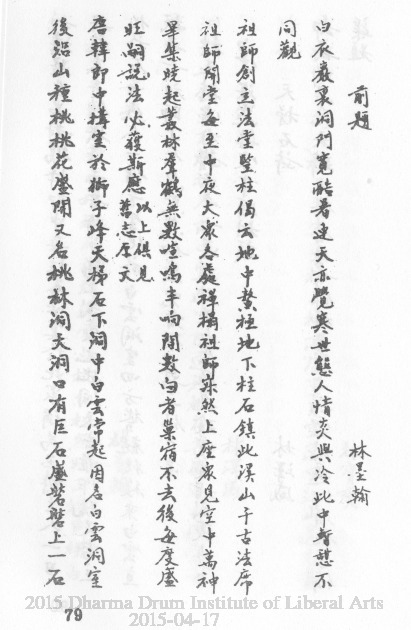 前題
林墨翰
白衣巖裏洞門寬酷暑連天亦覺寒世態人情炎與冷此中暫憩不
同觀
祖師創立法堂豎柱偈云地中發柱地下柱石鎮此溪山千古法席
祖師開堂每至中夜大眾各處禪榻祖師寂然上座眾見空中萬神
畢集曉起叢林羣鶴無數喧鳴半响間數白者巢宿不去後每度盛
旺嗣說法必獲斯應以上俱見舊志原文
唐韓郎中構室於獅子峰天梯石下洞中白雲常起因名白雲洞室
後沿山種桃桃花盛開又名桃林洞天洞口有巨石盛磐磐上一石
2015 Dharma Drum Institute of Liberal Arts
79
2015-04-17